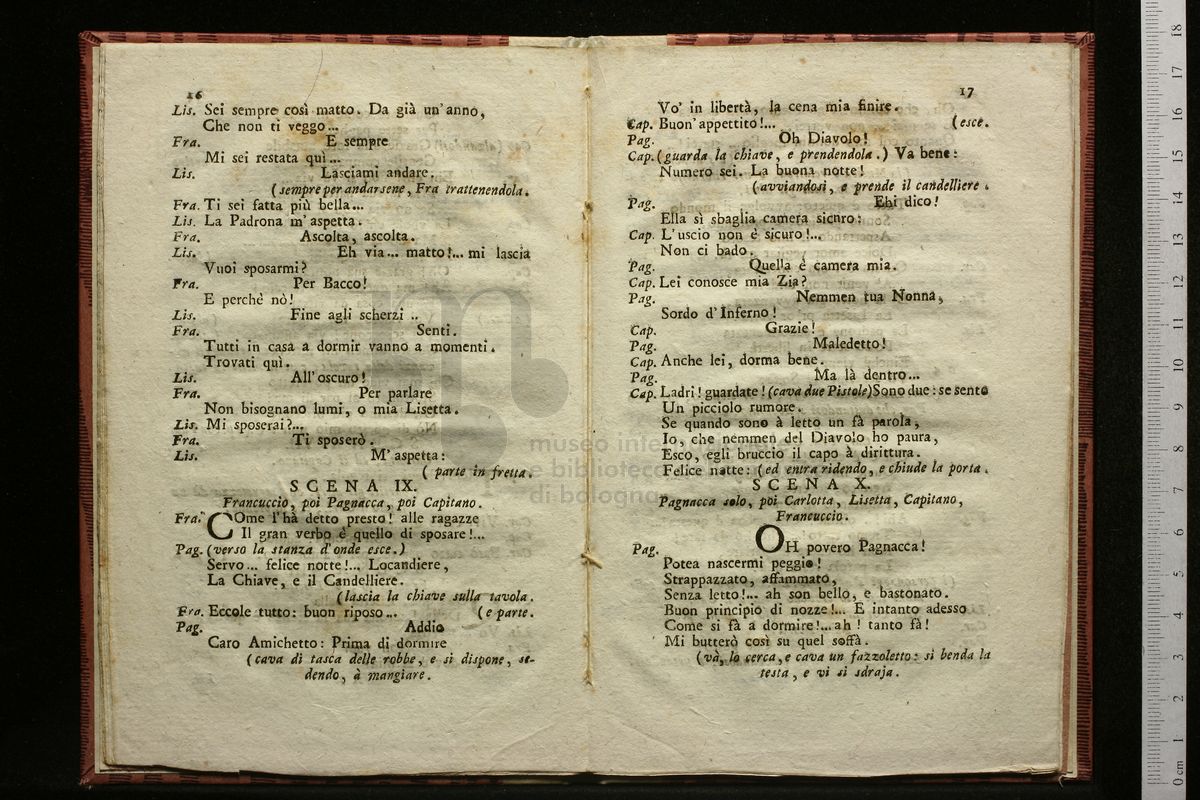 16
Lis. Sei sempre così matto. Da già un'anno,
Che non ti veggo...
Fra. E sempre
Mi sei restata quì...
Lis. Lasciami andare.
(sempre per andarsene, Fra trattenendola.
Fra. Ti sei fatta più bella...
Lis. La Padrona m'aspetta.
Fra. Ascolta, ascolta.
Lis. Eh via... matto!... mi lascia
Vuoi sposarmi?
Fra. Per Bacco!
E perchè nò!
Lis. Fine agli scherzi ..
Fra. Senti.
Tutti in casa a dormir vanno a momenti.
Trovati quì.
Lis. All'oscuro!
Fra. Per parlare
Non bisognano lumi, o mia Lisetta.
Lis. Mi sposerai?...
Fra. Ti sposerò.
Lis. M'aspetta:
(parte in fretta.
SCENA IX.
Francuccio, poi Pagnacca, poi Capitano.
Fra. COme l'hà detto presto! alle ragazze
Il gran verbo è quello di sposare!...
Pag. (verso la stanza d'onde esce.)
Servo... felice notte!... Locandiere,
La Chiave, e il Candelliere.
(lascia la chiave sulla tavola.
Fra. Eccole tutto: buon riposo... (e parte.
Pag. Addio
Caro Amichetto: Prima di dormire
(cava di tasca delle robbe, e si dispone, se-
dendo, à mangiare.
17
Vo' in libertà, la cena mia finire.
Cap. Buon'appettito!... (esce.
Pag. Oh Diavolo!
Cap. (guarda la chiave, e prendendola.) Va bene:
Numero sei. La buona notte!
(avviandosi, e prende il candelliere.
Pag. Ehi dico!
Ella sì sbaglia camera sicuro:
Cap. L'uscio non è sicuro!...
Non ci bado.
Pag. Quella è camera mia.
Cap. Lei conosce mia Zia?
Pag. Nemmen tua Nonna,
Sordo d'Inferno!
Cap. Grazie!
Pag. Maledetto!
Cap. Anche lei, dorma bene.
Pag. Ma là dentro...
Cap. Ladri! guardate! (cava due Pistole) Sono due: se sento
Un picciolo rumore.
Se quando sono à letto un fà parola,
Io, che nemmen del Diavolo ho paura,
Esco, egli bruccio il capo à dirittura.
Felice notte: (ed entra ridendo, e chiude la porta.
SCENA X.
Pagnacca solo, poi Carlotta, Lisetta, Capitano,
Francuccio.
Pag. OH povero Pagnacca!
Potea nascermi peggio!
Strappazzato, affammato,
Senza letto!... ah son bello, e bastonato.
Buon principio di nozze!... E intanto adesso
Come si fà a dormire!... ah! tanto fà!
Mi butterò così su quel soffà.
(và, lo cerca, e cava un fazzoletto: si benda la
testa, e vi si sdraja.